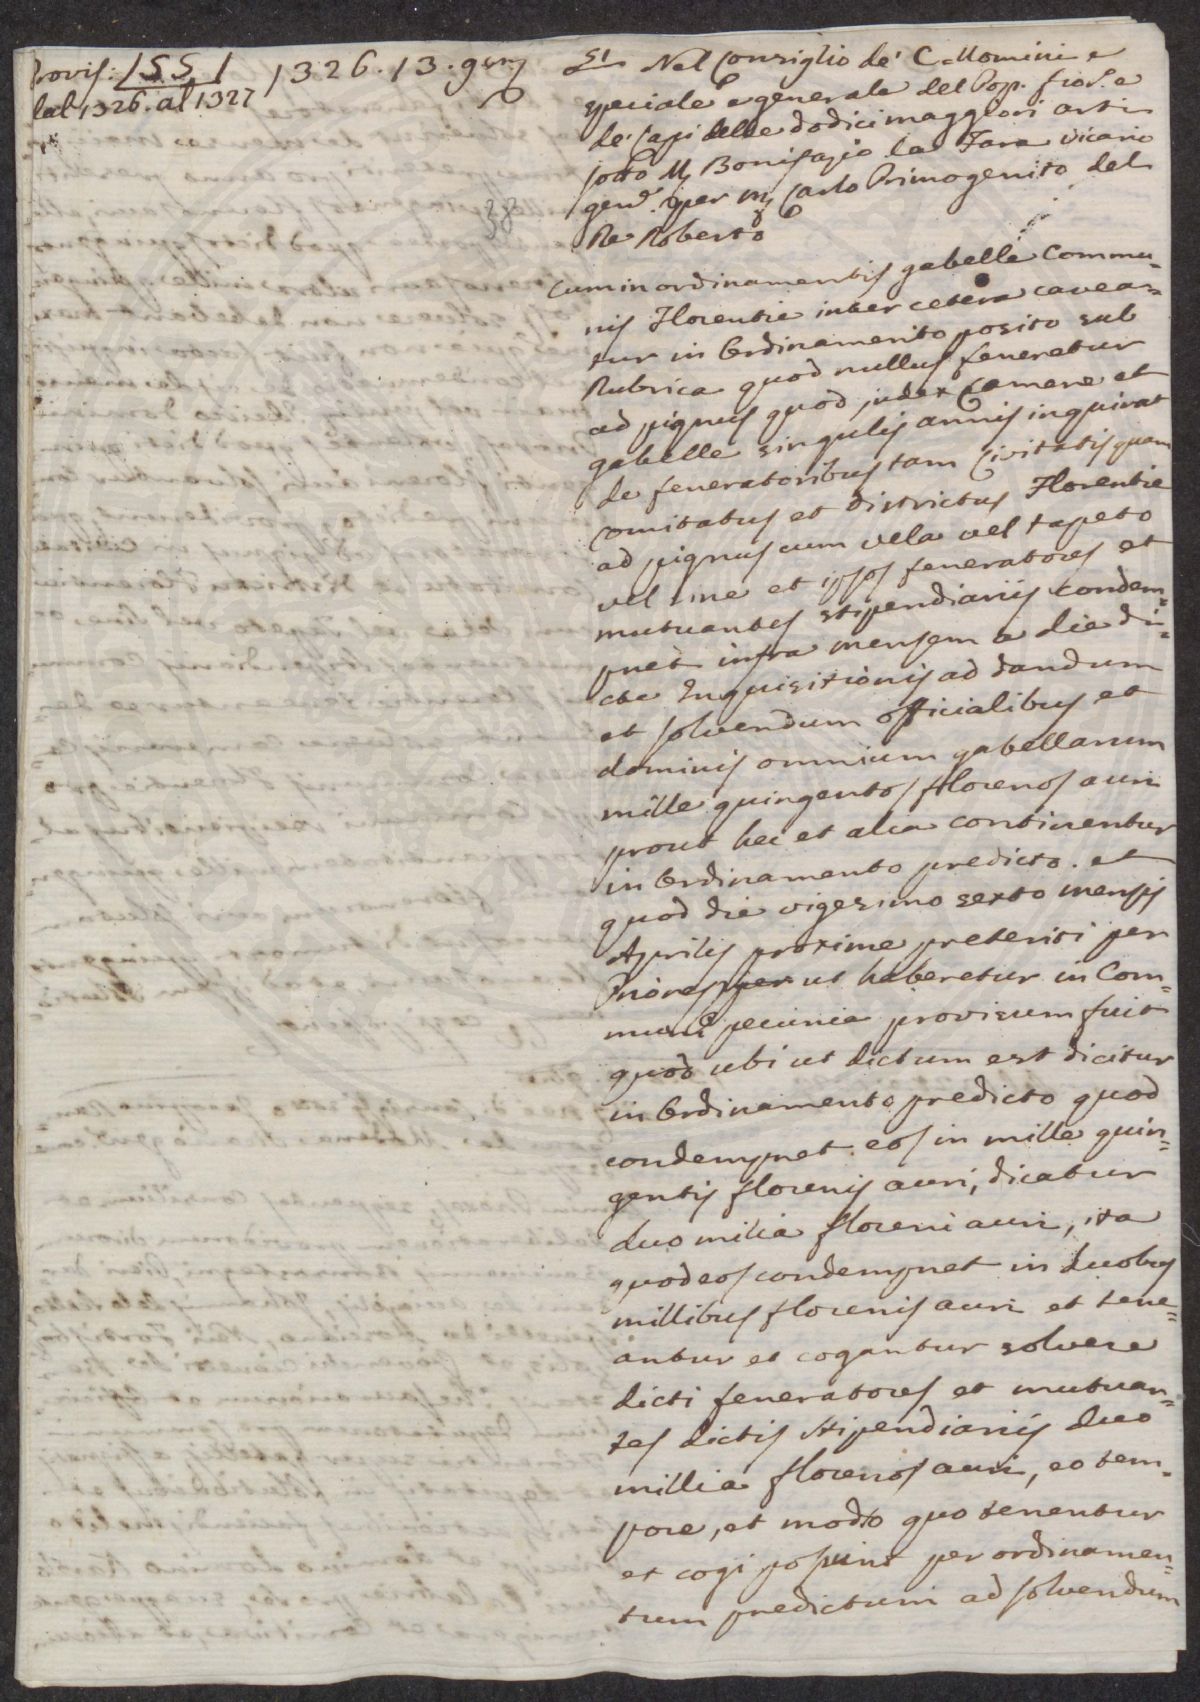 Provis: 1551
dal 1326. al 1327
1326. 13. genn
38
51 Nel Consiglio de' C. Uomini e
speciale e generale del Pop. fior. e
de' Capi delle dodici maggiori arti
sotto M Bonifazio da Fara vicario
gen. per m Carlo Primogenito del
Re Roberto
Cum in ordinamentis gabelle Commu=
nis Florentie inter cetera cavea=
tur in Ordinamento posito sub
Rubrica quod nullus feneretur
ad pignus quod judex Camere et
gabelle singulis annis inquirat
de feneratoribus tam Civitatis quam
comitatus et districtus Florentie
ad pignus cum vela vel tapeto
vel sine et ipsos feneratores et
mutuantes stipendiariis condem=
pnet infra mensem a die di=
cte Inquisitionis ad dandum
et solvendum officialibus et
dominis omnium gabellarum
mille quingentos florenos auri
prout hec et alia continentur
in Ordinamento predicto. et
quod die vigesimo sexto mensis
Aprilis proxime preteriti per
Priores per ut haberetur in Com=
muni pecunia provisum fuit
quod ubi ut dictum est dicitur
in Ordinamento predicto quod
condempnet eos in mille quin=
gentis florenis auri, dicatur
duo milia floreni auri, ita
quod eos condempnet in duobus
millibus florenis auri et tene=
antur et cogantur solvere
dicti feneratores et mutuan=
tes dictis stipendiariis duo
millia florenos auri, eo tem=
pore, et modo quo tenentur
et cogi possunt per ordinamen=
tum predictum ad solvendum